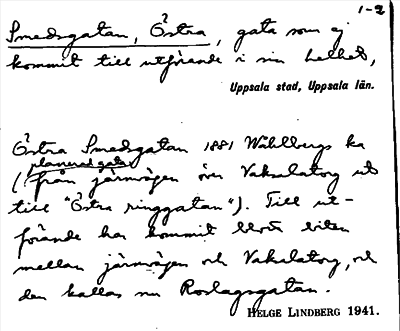 1-2
Smedsgatan, Östra, gata som ej
kommit till utförande i sin helhet,
Uppsala stad, Uppsala län.
Östra Smedsgatan 1881 Wåhlbergs ka
planerad gata
(från järnvägen över Vaksalatorg ut
till "Östra ringgatan"). Till ut-
förande har kommit blott biten
mellan järnvägen och Vaksalatorg, och
den kallas nu Roslagsgatan.
HELGE LINDBERG 1941.